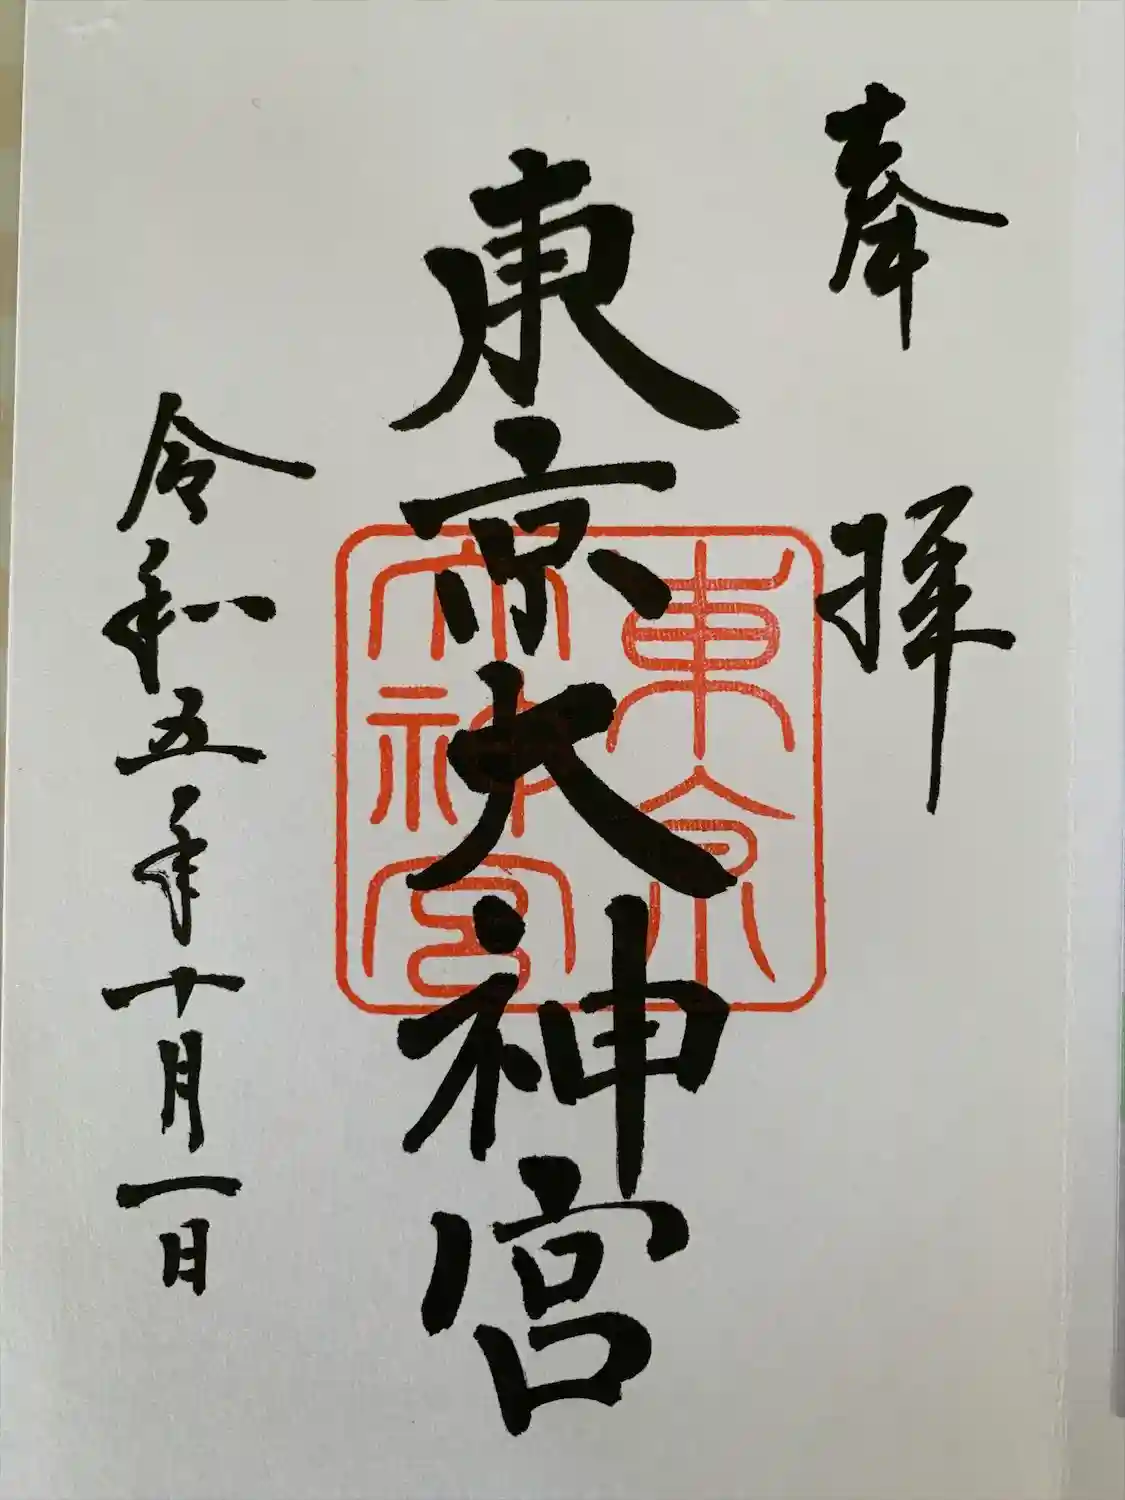 奉拝
東京大神宮
東京
大神宮
令和五年十月一日